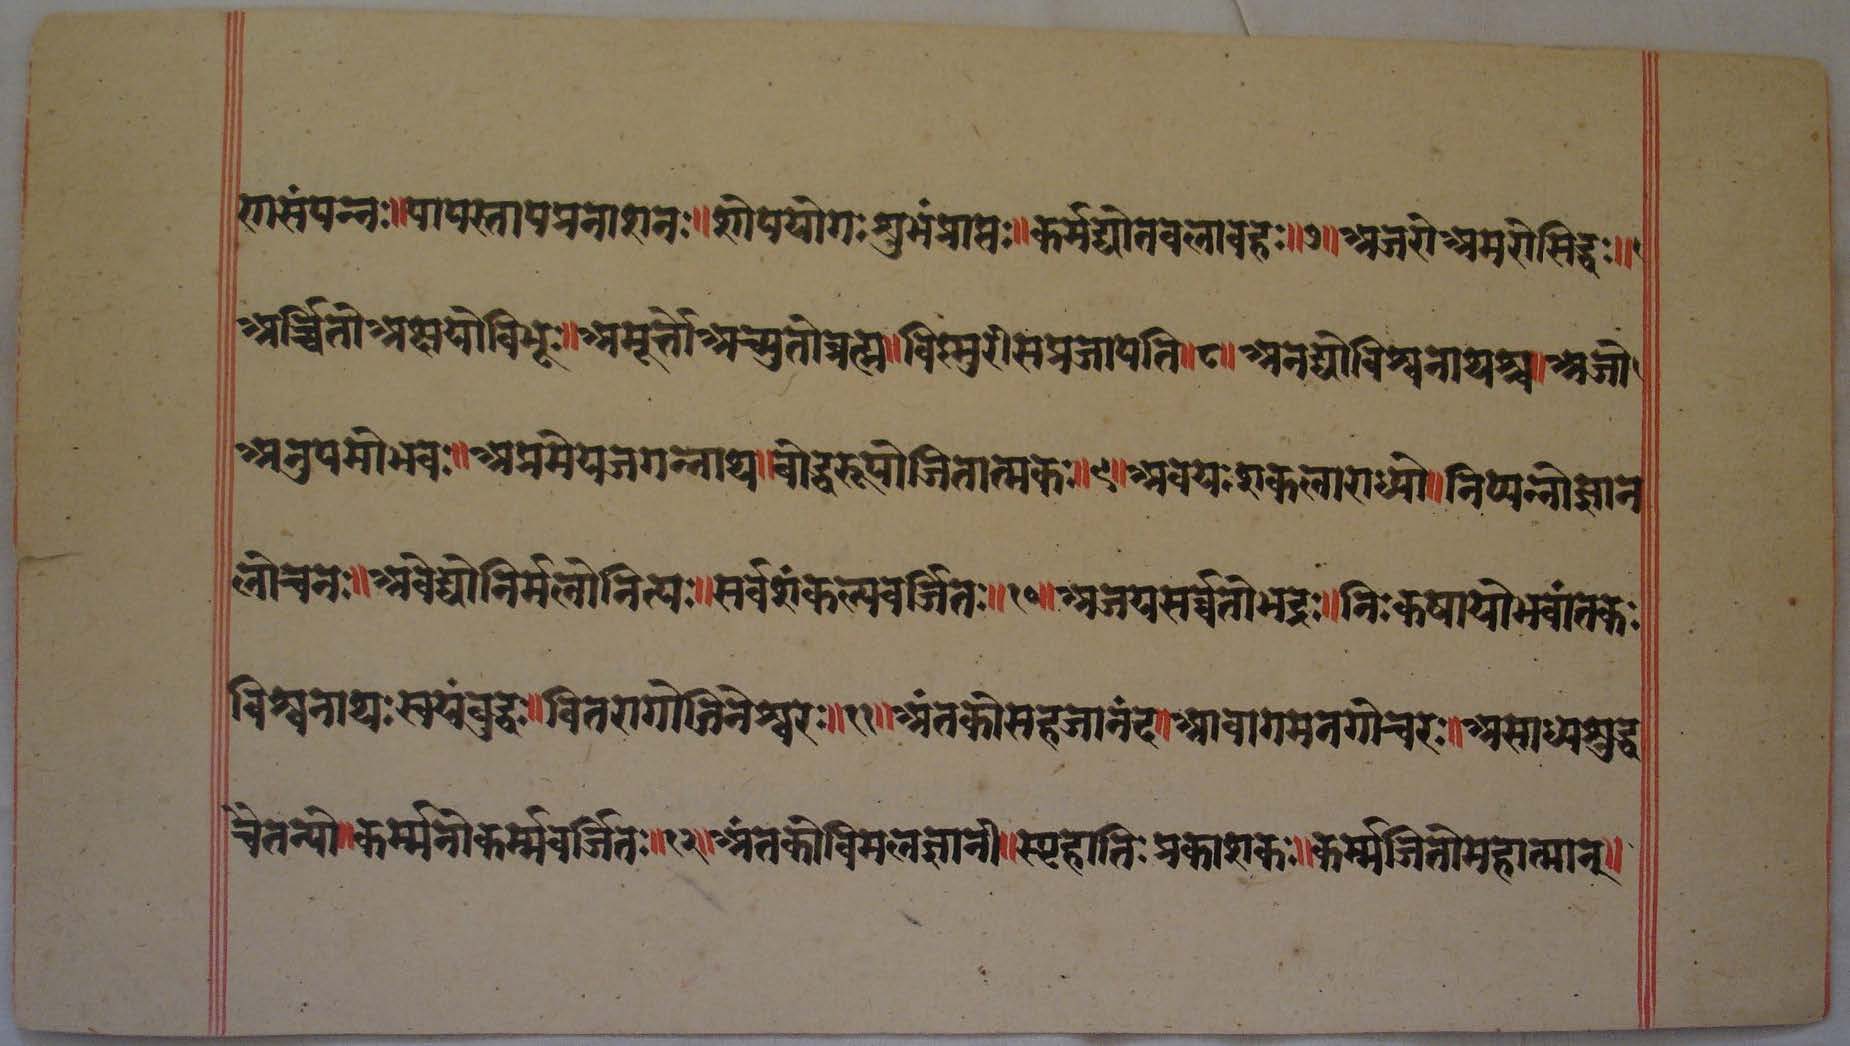 णसंपन्नः॥पापस्तापप्रनाशनः॥शोपयोगः शुभंप्राप्तः॥कर्मद्योतबलावहः॥७॥अजरोअमरोसिद्धः॥
अर्च्चितोअक्षयोविभूः॥अमूर्त्तोअच्युतोब्रह्म॥विस्मुरीसप्रजापति॥८॥अनद्योविश्वनाथश्च॥अजो
अनुपमोभवः॥अप्रमेयजगन्नाथ॥बोद्धरूपोजितात्मकः॥९॥अवयःशकलाराध्यो॥निष्पन्नोज्ञान
लोचनः॥अवेद्योनिर्मलोनित्यः॥सर्वशंकल्पवर्जितः॥१०॥अजयसर्व्वतोभद्रः॥निःकषायोभवांतकः
विश्वनाथःस्वयंबुद्धः॥वितरागोजिनेश्वरः॥११॥अंतकोसहजानंद॥आवागमनगोचरः॥असाध्यशुद्ध
चैतन्यो॥कर्म्मनोकर्म्मवर्जितः॥१२॥अंतकोविमलज्ञानी॥स्पृहातिःप्रकाशकः॥कर्म्मजितोमहात्मान्॥